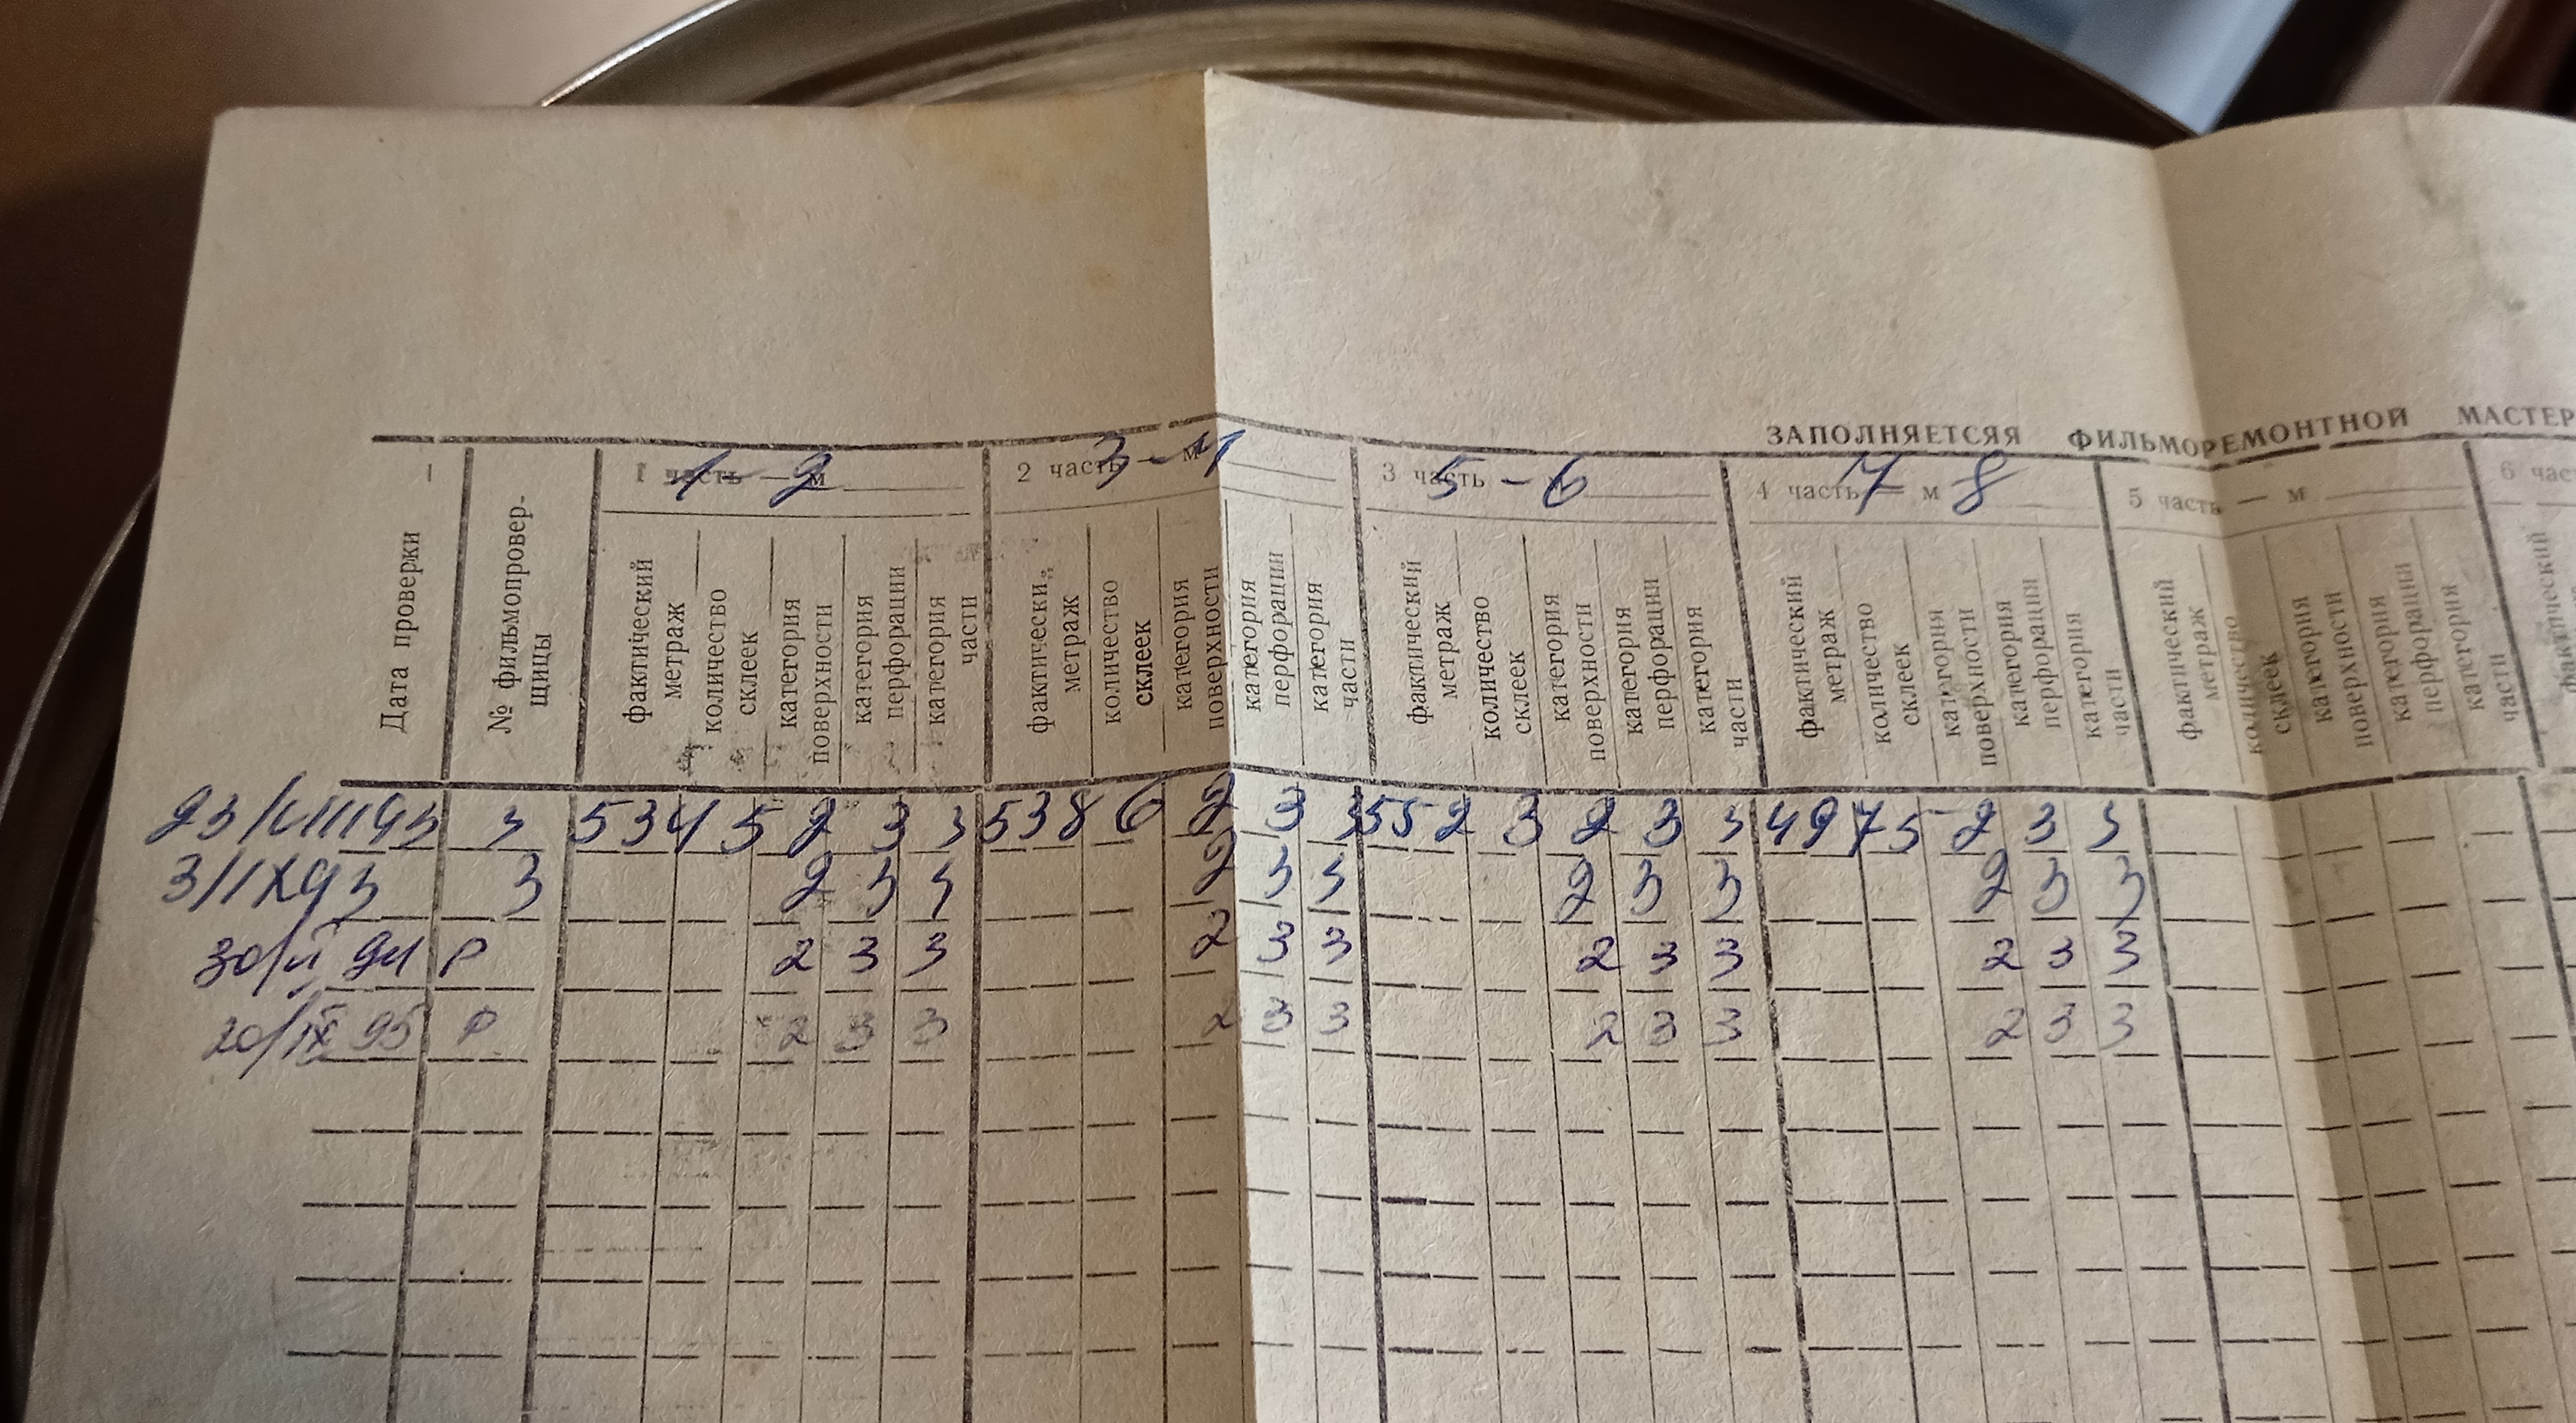 ЗАПОЛНЯЕТСЯЯ ФИЛЬМОРЕМОНТНОЙ МАСТЕР
Дата проверки
№ фильмопровер-
щицы
1 часть — м 1-2
2 часть — м 3-4
3 часть 5-6
4 часть — м 7 8
5 часть — м
6 час
фактический
метраж
количество
склеек
категория
поверхности
категория
перфорации
категория
части
фактически
метраж
количество
склеек
категория
поверхности
категория
перфорации
категория
части
фактический
метраж
количество
склеек
категория
поверхности
категория
перфорации
категория
части
фактический
метраж
количество
склеек
категория
поверхности
категория
перфорации
категория
части
фактический
метраж
количество
склеек
категория
поверхности
категория
перфорации
категория
части
фактический
23/VIII 93 3 534 5 2 3 3 538 6 2 3 3 552 3 2 3 3 497 5 2 3 3
3/IX 93 3 2 3 3 2 3 3 2 3 3 2 3 3
94 Р 2 3 3 2 3 3 2 3 3 2 3 3
20/IX 95 Р 2 3 3 2 3 3 2 3 3 2 3 3